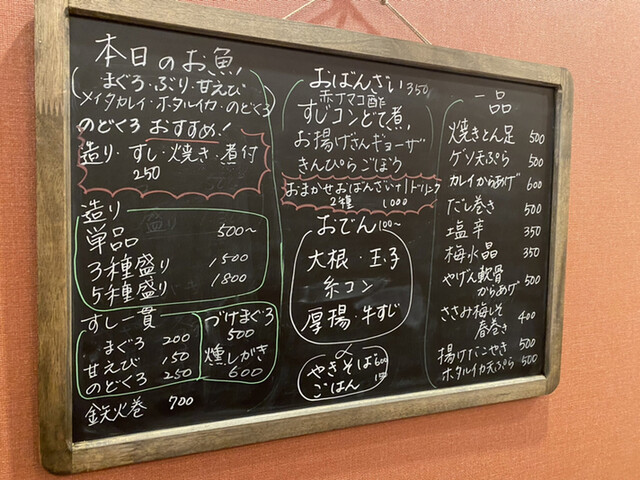 本日のお魚
まぐろ・ぶり・甘えび
メイタカレイ・ホタルイカ・のどくろ
のどくろ おすすめ!
造り・すし・焼き・煮付
250
造り
単品 500〜
3種盛り 1500
5種盛り 1800
すし一貫
まぐろ 200
甘えび 150
のどくろ 250
鉄火巻 700
づけまぐろ
500
燻しがき
600
おばんざい 350
赤ナマコ酢
すじコンどて煮
お揚げさんギョーザ
きんぴらごぼう
おまかせおばんざい+1ドリンク
2種 1000
おでん 100〜
大根・玉子
糸コン
厚揚・牛すじ
〆
やきそば 600
ごはん
一品
焼きとん足 500
ゲソ天ぷら 500
カレイからあげ 600
だし巻き 500
塩辛 350
梅水晶 350
やげん軟骨
からあげ 500
ささみ梅しそ
春巻き 400
揚げだこやき 500
ホタルイカ天ぷら 500